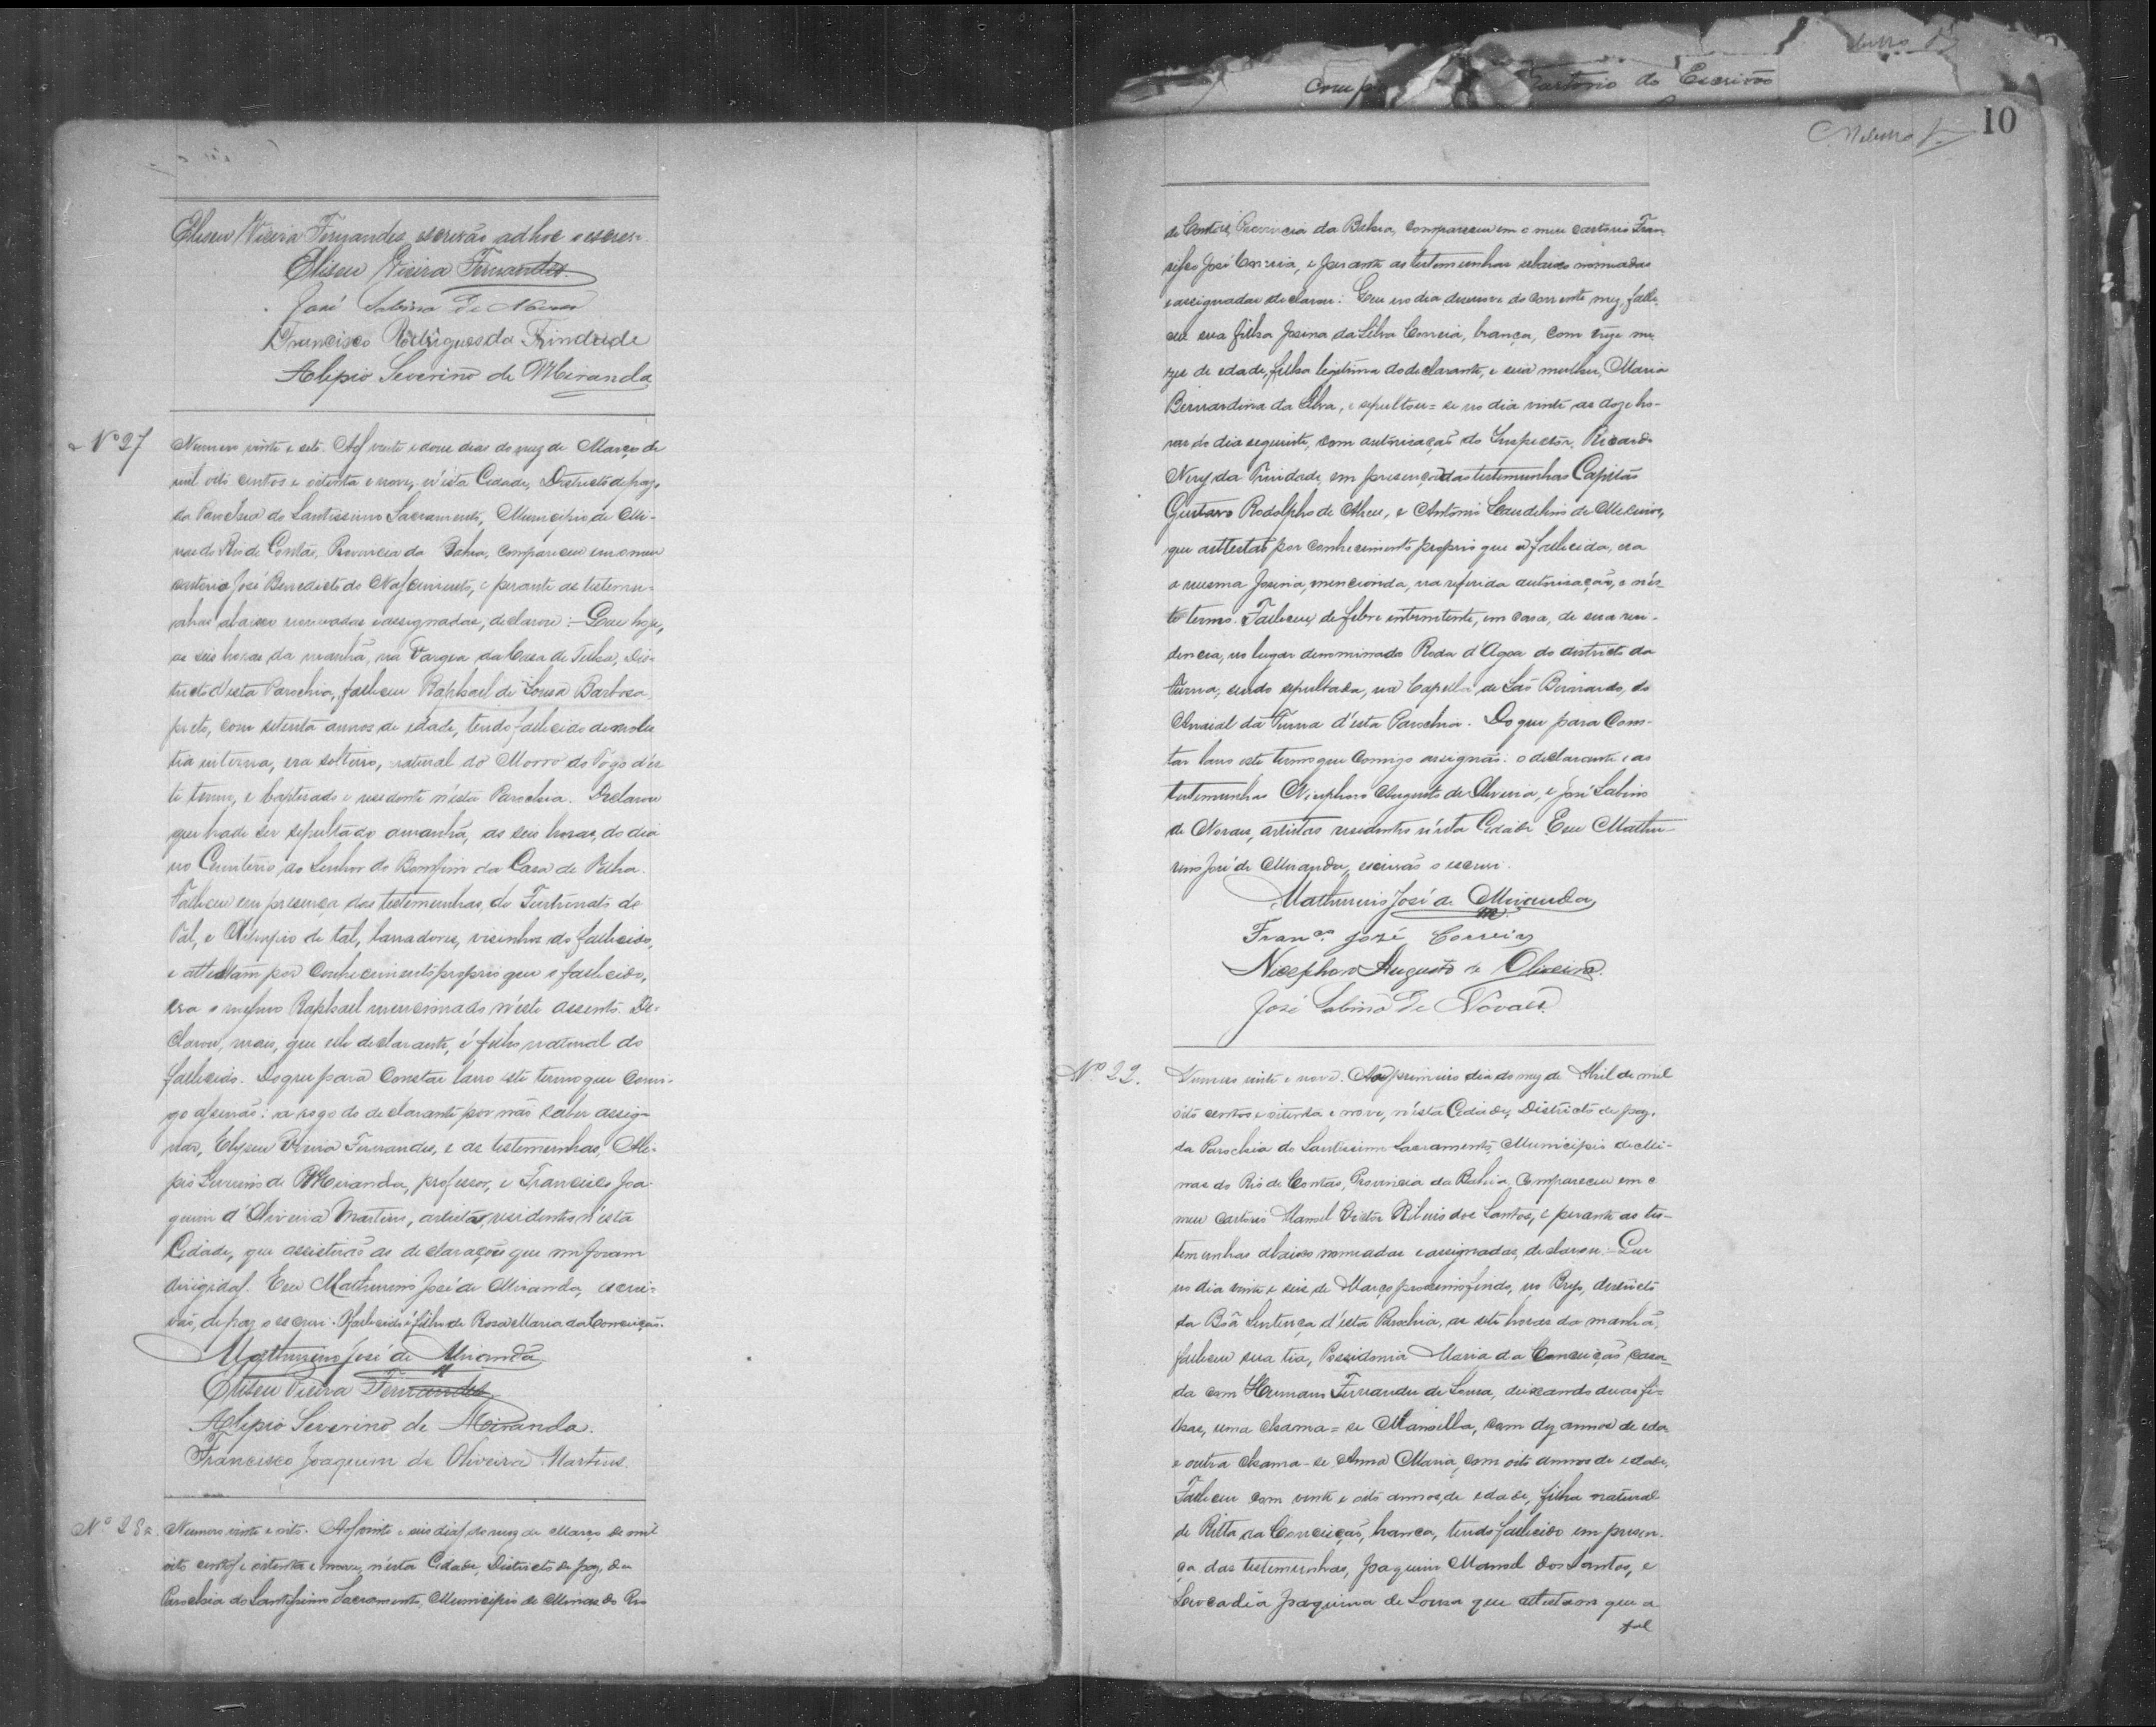 Eliseu Vieira Fernandes, escrivão ad hoc o escrevi.
Eliseu Vieira Fernandes
José Sabino de Novaes
Francisco Rodrigues da Trindade
Alipio Severino de Miranda
Nº 27
Numero vinte e sete. Aos vinte e dous dias do mez de Março de
mil oito centos e oitenta e nove, n'esta Cidade, Districto de paz,
da Parochia do Santissimo Sacramento, Municipio de Mi-
nas do Rio de Contas, Provincia da Bahia, compareceu em o meu
cartorio José Benedicto do Nascimento, e perante as testemu-
nhas abaixo nomeadas e assignadas, declarou: Que hoje,
as seis horas da manhã, na Vargea da Casa de Telha, Dis-
tricto d'esta Parochia, falleceu Raphael de Sousa Barbosa,
preto, com setenta annos de edade, tendo fallecido de moles
tia interna, era solteiro, natural do Morro do Fogo d'es
te termo, e baptisado e residente n'esta Parochia. Declarou
que hade ser sepultado amanhã, as seis horas, do dia
no Cemiterio do Senhor do Bomfim da Casa de Telha.
Falleceu em presença das testemunhas, de Fortunato de
Tal, e Olimpio de tal, lavradores, visinhos do fallecido,
e attestam por conhecimento proprio que o fallecido,
era o mesmo Raphael mencionado n'este assento. De-
clarou, mais, que elle declarante, é filho natural do
fallecido. Do que para constar lavro este termo que comi-
go assignão: a rogo do declarante por não saber assig-
nar, Elyseu Vieira Fernandes, e as testemunhas, Ali-
pio Severino de Miranda, professor, e Francisco Joa-
quim d'Oliveira Martins, artista, residentes n'esta
Cidade, que assistirão as declarações que me foram
dirigidas. Eu Mathurino José de Miranda, escri-
vão, de paz o escrevi. O fallecido é filho de Rosa Maria da Conceição.
Mathurino José de Miranda
Eliseu Vieira Fernandes
Alipio Severino de Miranda.
Francisco Joaquim de Oliveira Martins.
Nº 28
Numero vinte e oito. Aos vinte e seis dias do mez de Março de mil
oito centos e oitenta e nove, n'esta Cidade, Districto de paz, da
Parochia do Santissimo Sacramento, Municipio de Minas do Rio
Cartorio do Escrivão
10
de Contas, Provincia da Bahia, compareceu em o meu cartorio Fran-
cisco José Correia, e perante as testemunhas abaixo nomeadas
e assignadas declarou: Que no dia desenove do corrente mez, falle-
ceu sua filha Josina da Silva Correia, branca, com treze me
zes de edade, filha legitima do declarante, e sua mulher, Maria
Bernardina da Silva, e sepultou-se no dia vinte as doze ho-
ras do dia seguinte, com autorisação do Inspector, Ricardo
Nery da Trindade, em presença das testemunhas Capitão
Gustavo Rodolpho de Abreu, e Antonio
que attestão por conhecimento proprio que a fallecida, era
a mesma Josina, mencionda, na referida autorisação, e n'es-
te termo. Falleceu, de febre intermitente, em casa, de sua resi-
dencia, no lugar denominado Roda d'Agoa do districto da
Furna, sendo sepultada, na Capella de São Bernardo, do
Arraial da Furna d'esta Parochia. Do que para cons-
tar lavro este termo que comigo assignão: o declarante e as
testemunhas Nicephoro Augusto de Oliveira, e José Sabino
de Novaes, artistas residentes n'esta Cidade. Eu Mathu-
rino José de Miranda, escrivão o escrevi.
Mathurino José de Miranda
Franco José Correia
Nicephoro Augusto de Oliveira.
José Sabino de Novaes.
Nº 29.
Numero vinte e nove. Ao primeiro dia do mez de Abril de mil
oito centos e oitenta e nove, n'esta Cidade, Districto de paz,
da Parochia do Santissimo Sacramento, Municipio de Mi-
nas do Rio de Contas, Provincia da Bahia, compareceu em o
meu cartorio Manoel Victor Ribeiro dos Santos, e perante as tes-
temunhas abaixo nomeadas e assignadas, declarou: Que
no dia vinte e seis de Março proximo findo, no Brejo, districto
da Bôa Sentença d'esta Parochia, as sete horas da manhã,
falleceu sua tia, Possidonia Maria da Conceição, casa-
da com Hermano Fernandes de Sousa, deixando duas fi-
lhas, uma chama-se Manoella, com dez annos de eda
e outra chama-se Anna Maria, com oito annos de edade.
Falleceu com vinte e oito annos, de edade, filha natural
de Ritta da Conceição, branca, tendo fallecido em presen-
ça das testemunhas, Joaquim Manoel dos Santos, e
Leocadia Joaquina de Sousa que attestaom que a
fal